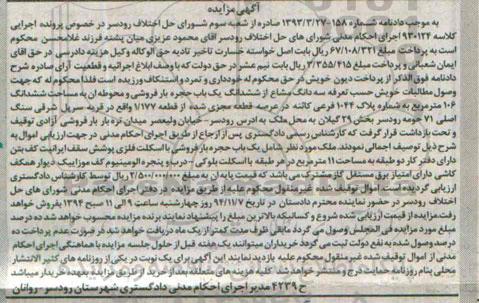 آگهی مزایده
به موجب دادنامه شماره ۱۵۸-۱۳۹۳/۳/۲۷ صادره از شعبه سوم شورای حل اختلاف رودسر در خصوص پرونده اجرایی
کلاسه ۹۳۰۱۲۴ اجرای احکام مدنی شورای های حل اختلاف رودسر آقای محمود عزیزی میان پشته فرزند غلامحسن محکوم
است به پرداخت مبلغ ۶۷/۱۰۸/۳۲۱ ریال بابت اصل خواسته خسارت تاخیر تادیه حق الوکاله وکیل هزینه دادرسی در حق آقای
ایمان شعبانی و پرداخت مبلغ ۳/۳۵۵/۴۱۵ ریال بابت نیم عشر در حق دولت که با وصف ابلاغ اجرائیه و قطعیت آرای صادره شرح
دادنامه فوق الذکر از پرداخت دیون خویش در حق محکوم له خودداری و تمرد و استنکاف ورزیده است فلذا محکوم له که جهت
وصول مطالبات خویش حسب تعرفه سه دانگ مشاع از ششدانگ یک باب حجره بار فروشی و محوطه ان به مساحت ششدانگ
۱۰۶ مترمربع به شماره پلاک ۱۰۴۴ فرعی کائنه در عرصه قطعه مجزی شد از قطعه ۱/۱۷۷ واقع در قریه سربل شرقی سنگ
اصلی ۷۱ حومه رودسر بخش ۲۹ گیلان به محل ملک به ادرس رودسر - خیابان ولیعصر میدان تره بار بار فروشی آزادی توقیف
و تحت بازداشت قرار گرفت که کارشناس رسمی دادگستری پس از ارجاع از طریق اجرای احکام مدنی در جهت ارزیابی اموال به
شرح ذیل توصیف اجمالی نمودند. ملک مورد نظر شامل یک باب حجره بار فروشی با اسکلت فلزی پوشش سقف ایرانیت کف بتن
دارای دفتر کار دو طبقه به مساحت ۱۱ مترمربع در هر طبقه با اسکلت بلوکی - درب و پنجره آلومینیوم کف موزاییک دیوار همکف
کاشی دارای امتیاز برق مستقل گاز مشترکی می باشد که قیمت پایه ان به مبلغ ۲/۵۰۰/۰۰۰/۰۰۰ ریال توسط کارشناس دادگستری
ارزیابی گردیده است. اموال توقیف شده غیر منقول محکوم علیه از طریق مزایده در دفتر اجرای احکام مدنی شورای های حل
اختلاف رودسر در حضور نماینده محترم دادستان در تاریخ ۹۴/۱۱/۷ روز چهارشنبه ساعت ۹ الی ۱۱ صبح ۱۳۹۴ بفروش خواهد
رفت مزایده از قیمت ارزیابی شده شروع و کسانیکه بالاترین مبلغ را پیشنهاد نمایند برنده مزایده محسوب خواهد شد ده درصد
مبلغ مورد مزایده فی المجلس وصول می گردد مابقی ظرف مدت کمتر از یک ماه دریافت خواهد شد در صورت عدم پرداخت ده
درصد وصول شده به نفع دولت ثبت می گردد خریداران میتوانند یک هفته قبل از حلول جلسه مزایده با هماهنگی اجرای احکام
مدنی از اموال توقیف شده غیر منقول محکوم علیه بازدید نمایند این آگهی برای یک نوبت در یکی از روزنامه های کثیر الانتشار
محلی بنام روزنامه حمایت درج و منتشر خواهد شد. کلیه هزینه های متعلقه بعد از خرید از طریق مزایده بعهده خریدار میباشد
ح ۴۲۳۹ مدیر اجرای احکام مدنی دادگستری شهرستان رودسر - روانان